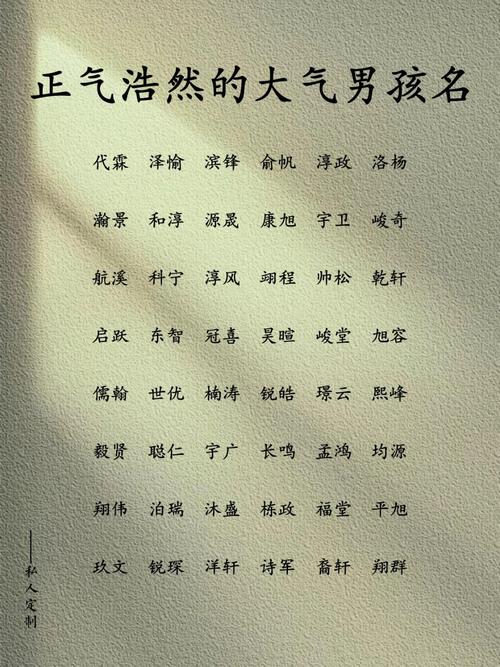 正气浩然的大气男孩名
代霖 泽愉 滨锋 俞帆 淳政 洛杨
瀚景 和淳 源晟 康旭 宇卫 峻奇
航溪 科宁 淳风 翊程 帅松 乾轩
启跃 东智 冠喜 昊暄 峻堂 旭容
儒翰 世优 楠涛 锐皓 璟云 熙峰
毅贤 聪仁 宇广 长鸣 孟鸿 均源
翔伟 泊瑞 沐盛 栋政 福堂 平旭
玖文 锐琛 洋轩 诗军 裔轩 翔群
——私人定制